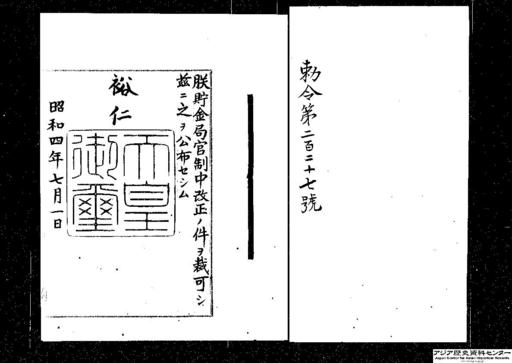 勅令第二百二十七號
朕貯金局官制中改正ノ件ヲ裁可シ
茲ニ之ヲ公布セシム
裕仁
天皇
御璽
昭和四年七月一日
アジア歴史資料センター
Japan Center for Asian Historical Records